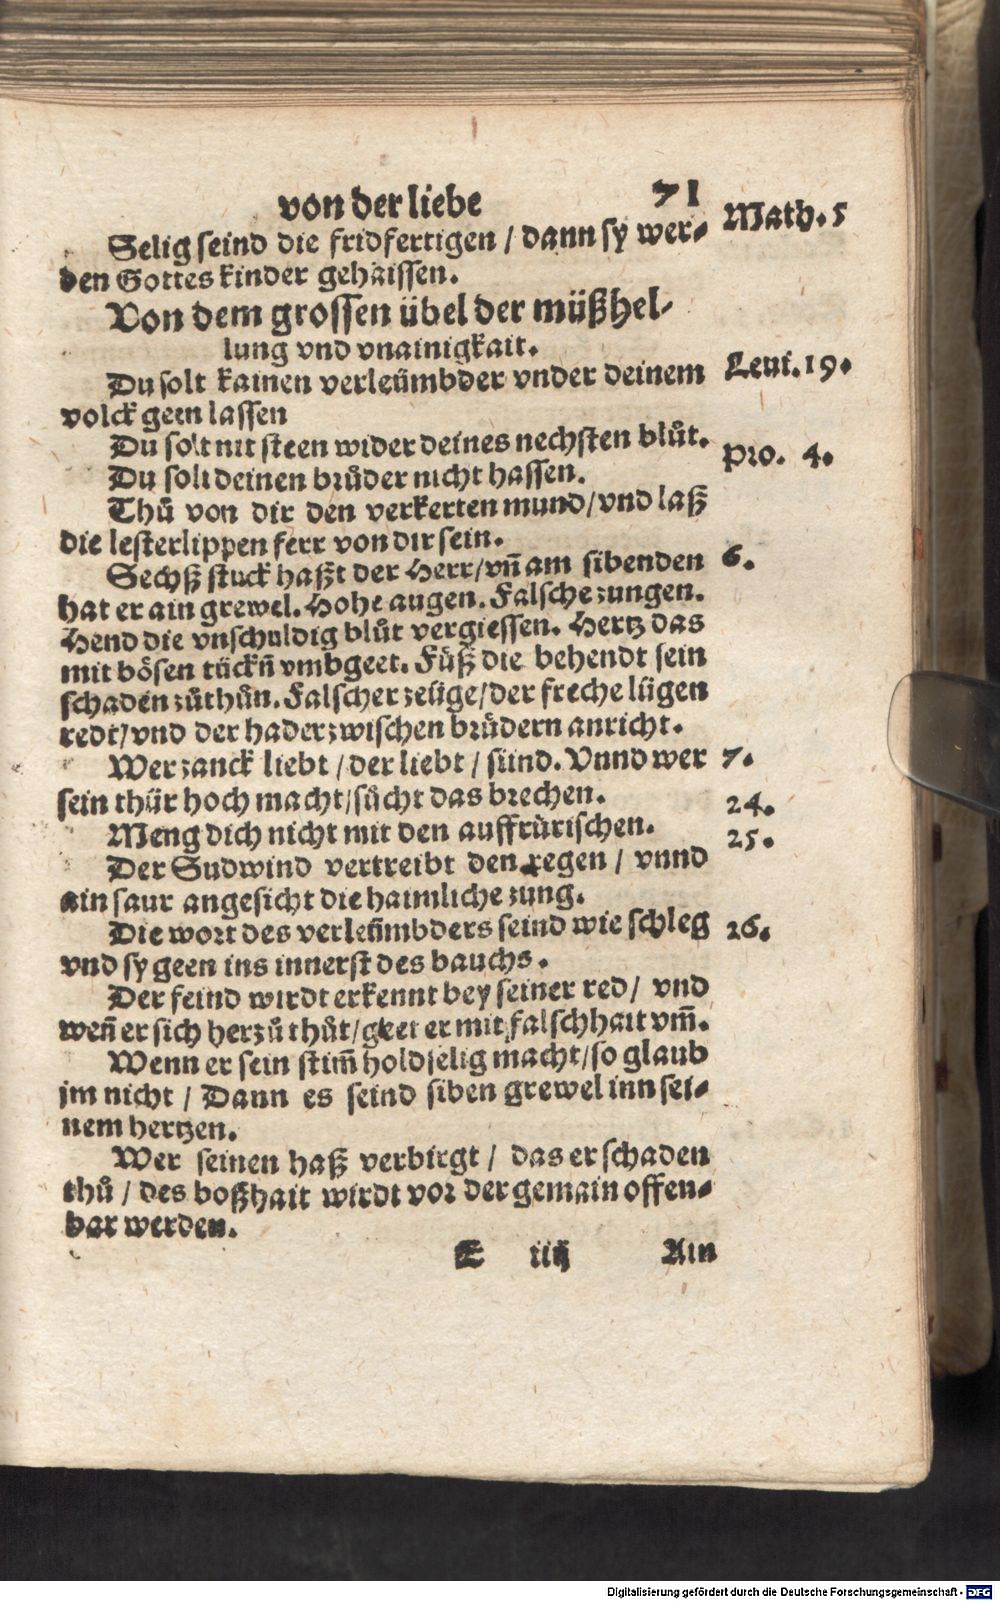 von der liebe 71
Selig seind die fridfertigen / dann sy wer⸗ Math. 5
den Gottes kinder gehaissen.
Von dem grossen übel der müßhel⸗
lung vnd vnainigkait.
Du solt kainen verleümbder vnder deinem Leui. 19.
volck geen lassen
Du solt nit steen wider deines nechsten blůt.
Du solt deinen brůder nicht hassen. Pro. 4.
Thů von dir den verkerten mund / vnd laß
die lesterlippen ferr von dir sein.
Sechß stuck haßt der Herr / vñ am sibenden 6.
hat er ain grewel. Hohe augen. Falsche zungen.
Hend die vnschuldig blůt vergiessen. Hertz das
mit bösen tückñ vmbgeet. Füß die behendt sein
schaden zůthůn. Falscher zeüge / der freche lügen
redt / vnd der hader zwischen brüdern anricht.
Wer zanck liebt / der liebt / sünd. Vnnd wer 7.
sein thür hoch macht / sůcht das brechen.
Meng dich nicht mit den auffrürischen. 24.
Der Sudwind vertreibt den regen / vnnd 25.
ain saur angesicht die haimliche zung.
Die wort des verleümbders seind wie schleg 26.
vnd sy geen ins innerst des bauchs.
Der feind wirdt erkennt bey seiner red / vnd
weñ er sich herzů thůt / geet er mit falschhait vm̃.
Wenn er sein stim̃ holdselig macht / so glaub
jm nicht / Dann es seind siben grewel inn sei⸗
nem hertzen.
Wer seinen haß verbirgt / das er schaden
thů / des boßhait wirdt vor der gemain offen⸗
bar werden.
iiij Ain
Digitalisierung gefördert durch die Deutsche Forschungsgemeinschaft - DFG